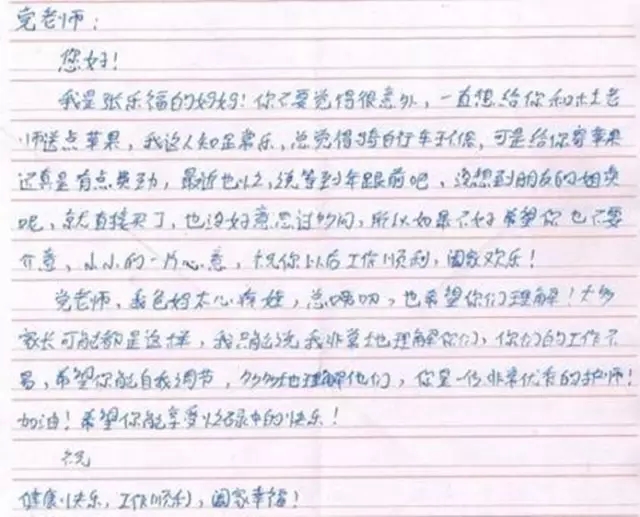 党老师：
您好！
我是张乐福的妈妈！你不要觉得很意外，一直想给你和杜老
师送点苹果，我这人知足常乐，总觉得骑自行车环保，可是给你寄苹果
还真是有点费劲，最近也忙，说等到年跟前吧，没想到朋友的姐卖
呢，就直接买了，也没好意思过多问，所以如果不好希望你也不要
介意，小小的一片心意，祝你以后工作顺利，阖家欢乐！
党老师，我爸妈太心疼娃，总唠叨，也希望你们理解！大多
家长可能都是这样，我只能说我非常地理解你们，你们的工作不
易，希望你能自我调节，多多地理解他们，你是一位非常优秀的护师！
加油！希望你能享受忙碌中的快乐！
祝
健康快乐，工作顺利，阖家幸福！